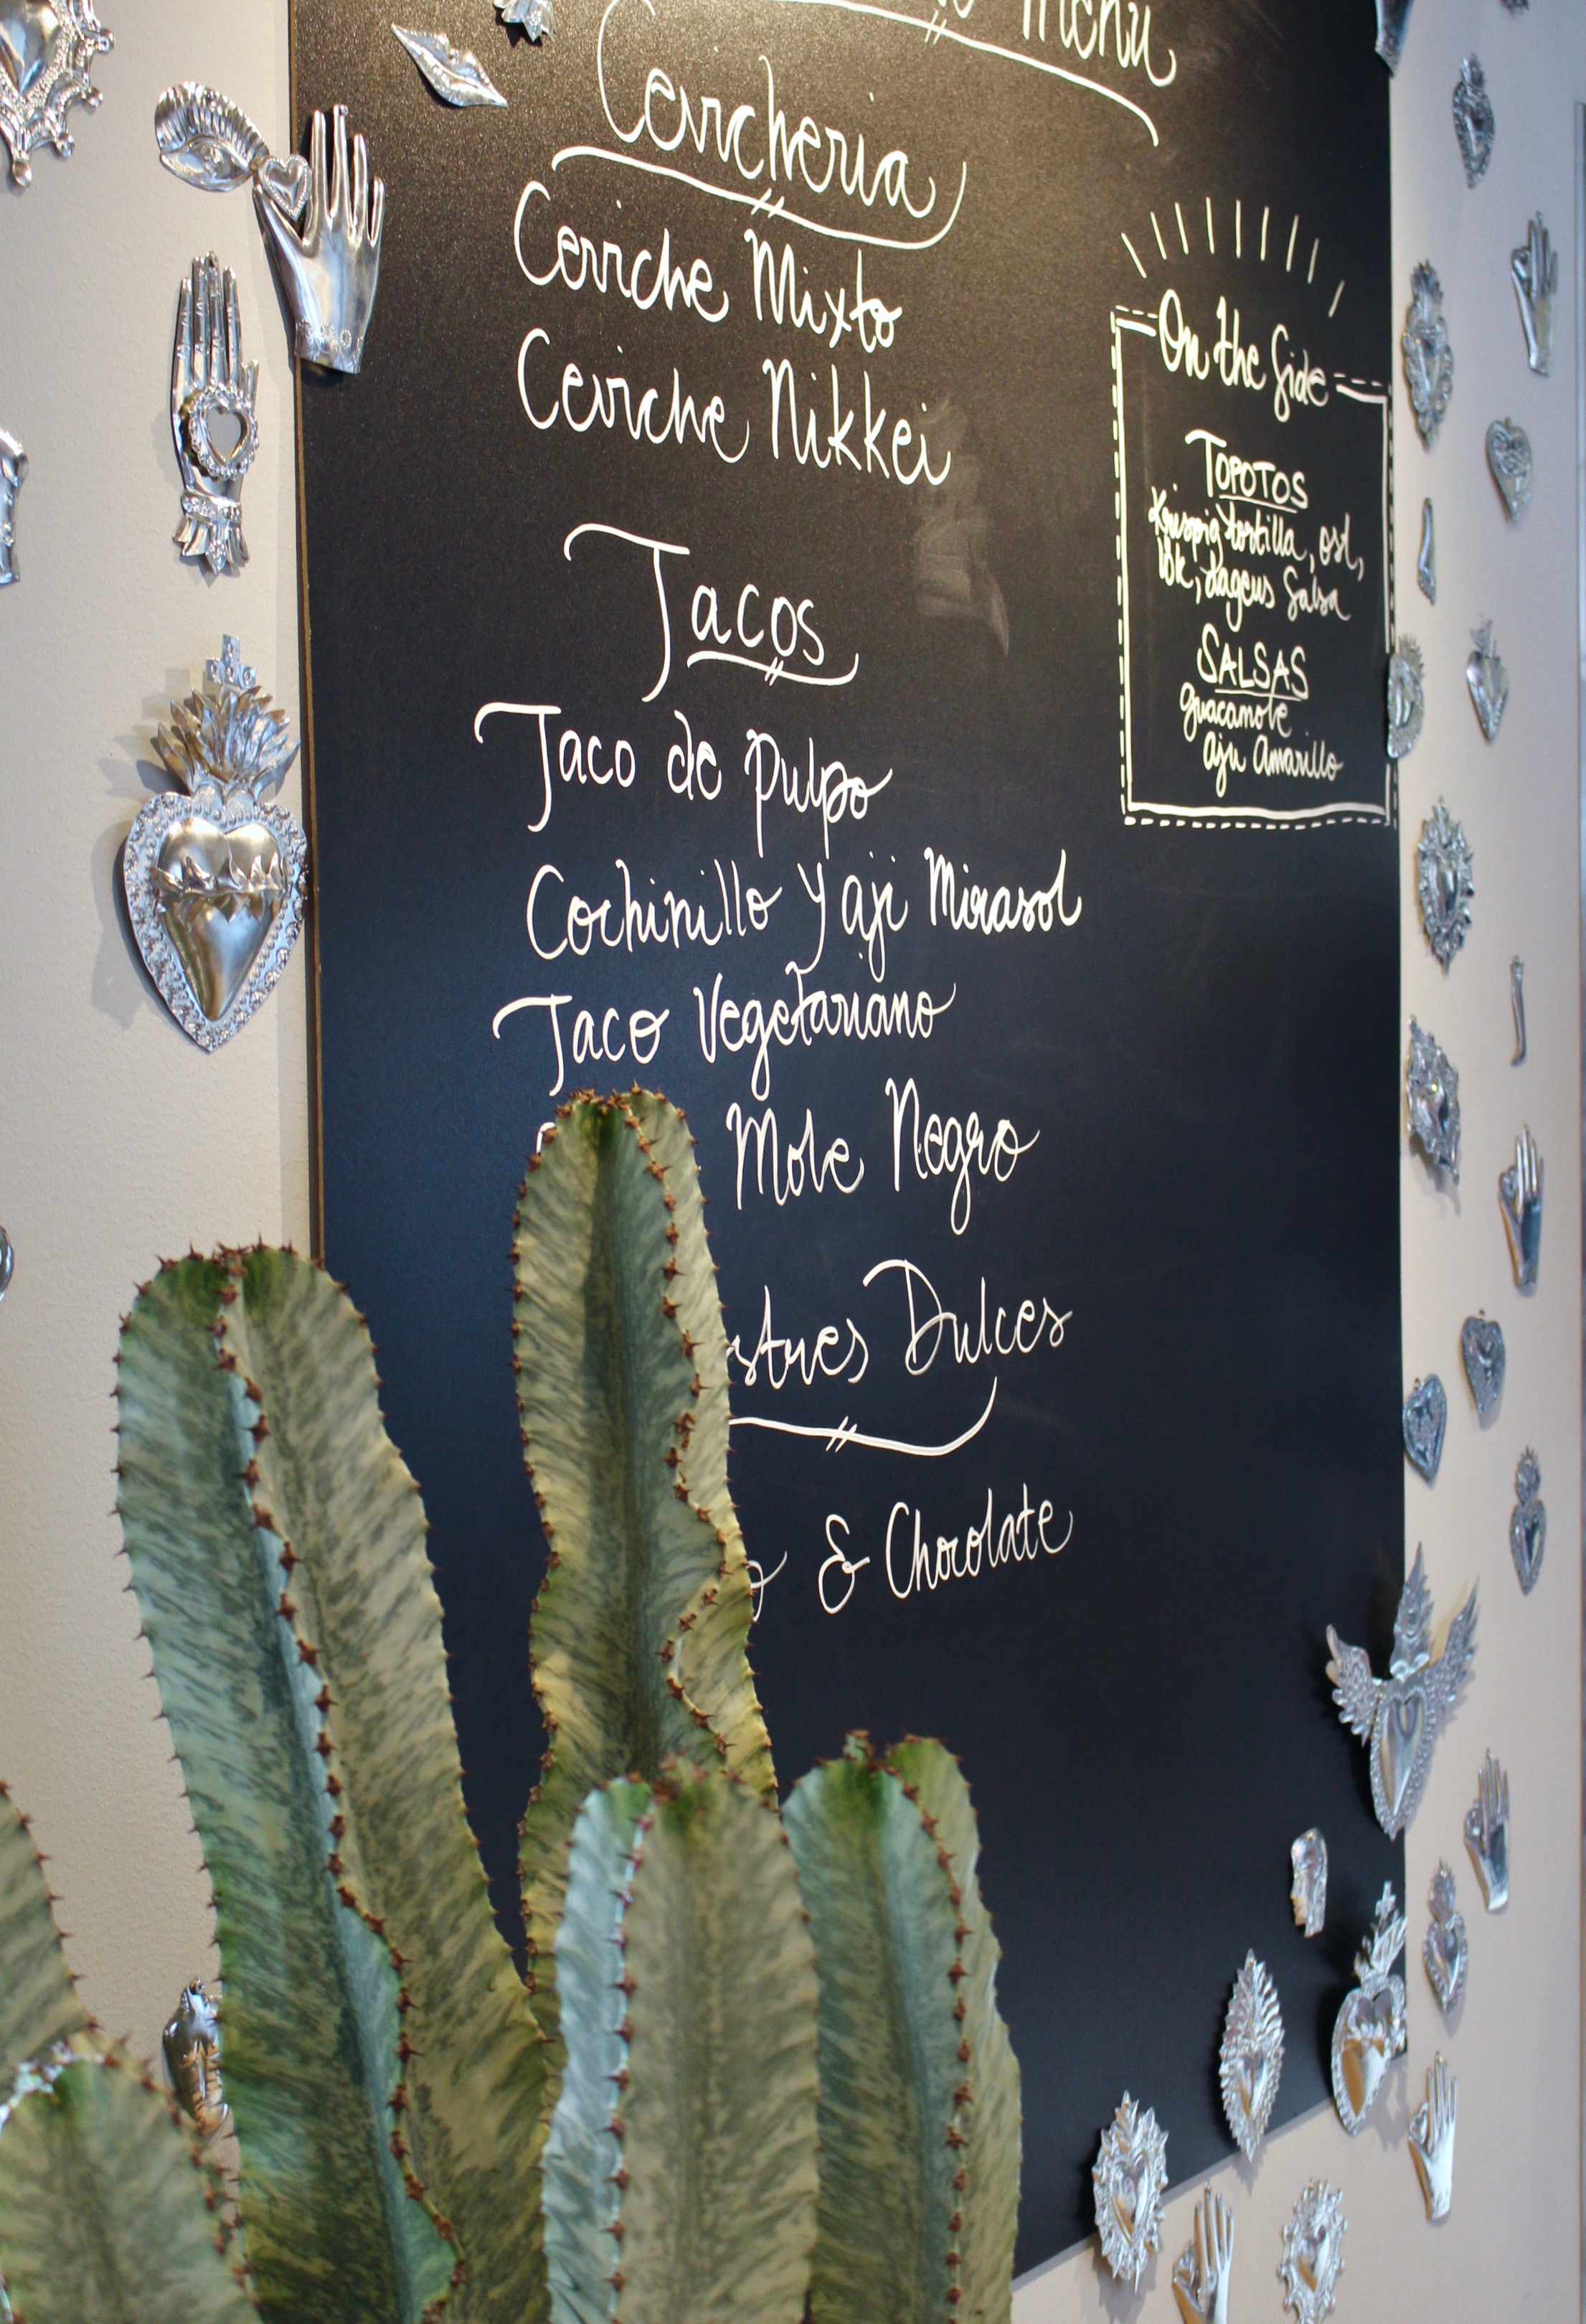 Menu
Cevicheria
Ceviche Mixto
Ceviche Nikkei
Tacos
Taco de pulpo
Cochinillo y aji Mirasol
Taco Vegetariano
Mole Negro
Dulces
& Chocolate
On the Side
TOPOTOS
Krispig tortilla, ost,
lök, dagens Salsa
SALSAS
guacamole
aji Amarillo